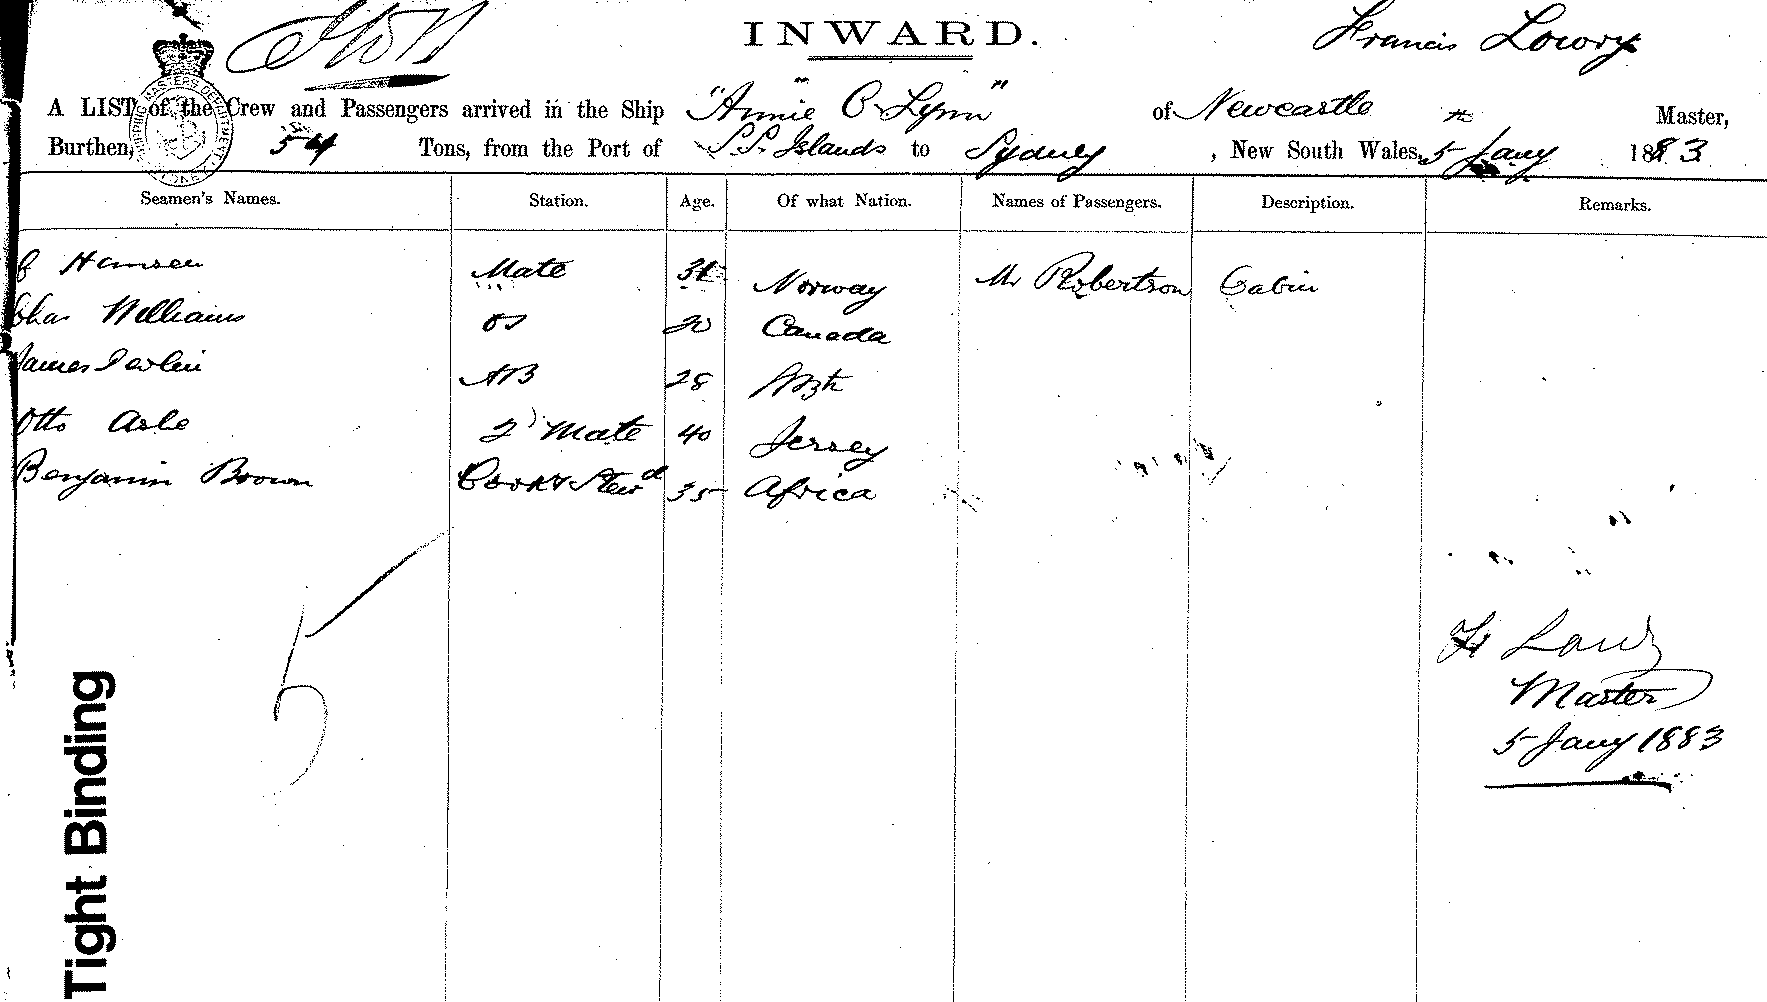 INWARD.
Francis Lowry
A LIST of the Crew and Passengers arrived in the Ship "Annie C Lynn" of Newcastle Master,
Burthen, 54 Tons, from the Port of S.S. Islands to Sydney, New South Wales, 5th Jany 1883
Seamen's Names. Station. Age. Of what Nation. Names of Passengers. Description. Remarks.
Hansen Mate Norway Mr Robertson Cabin
Chas Williams OS 20 Canada
James Devlin AB 28
Otto 2d Mate 40 Jersey
Benjamin Brown Cook & Stewd 35 Africa
5
Fr Lowry
Master
5 Jany 1883
Tight Binding